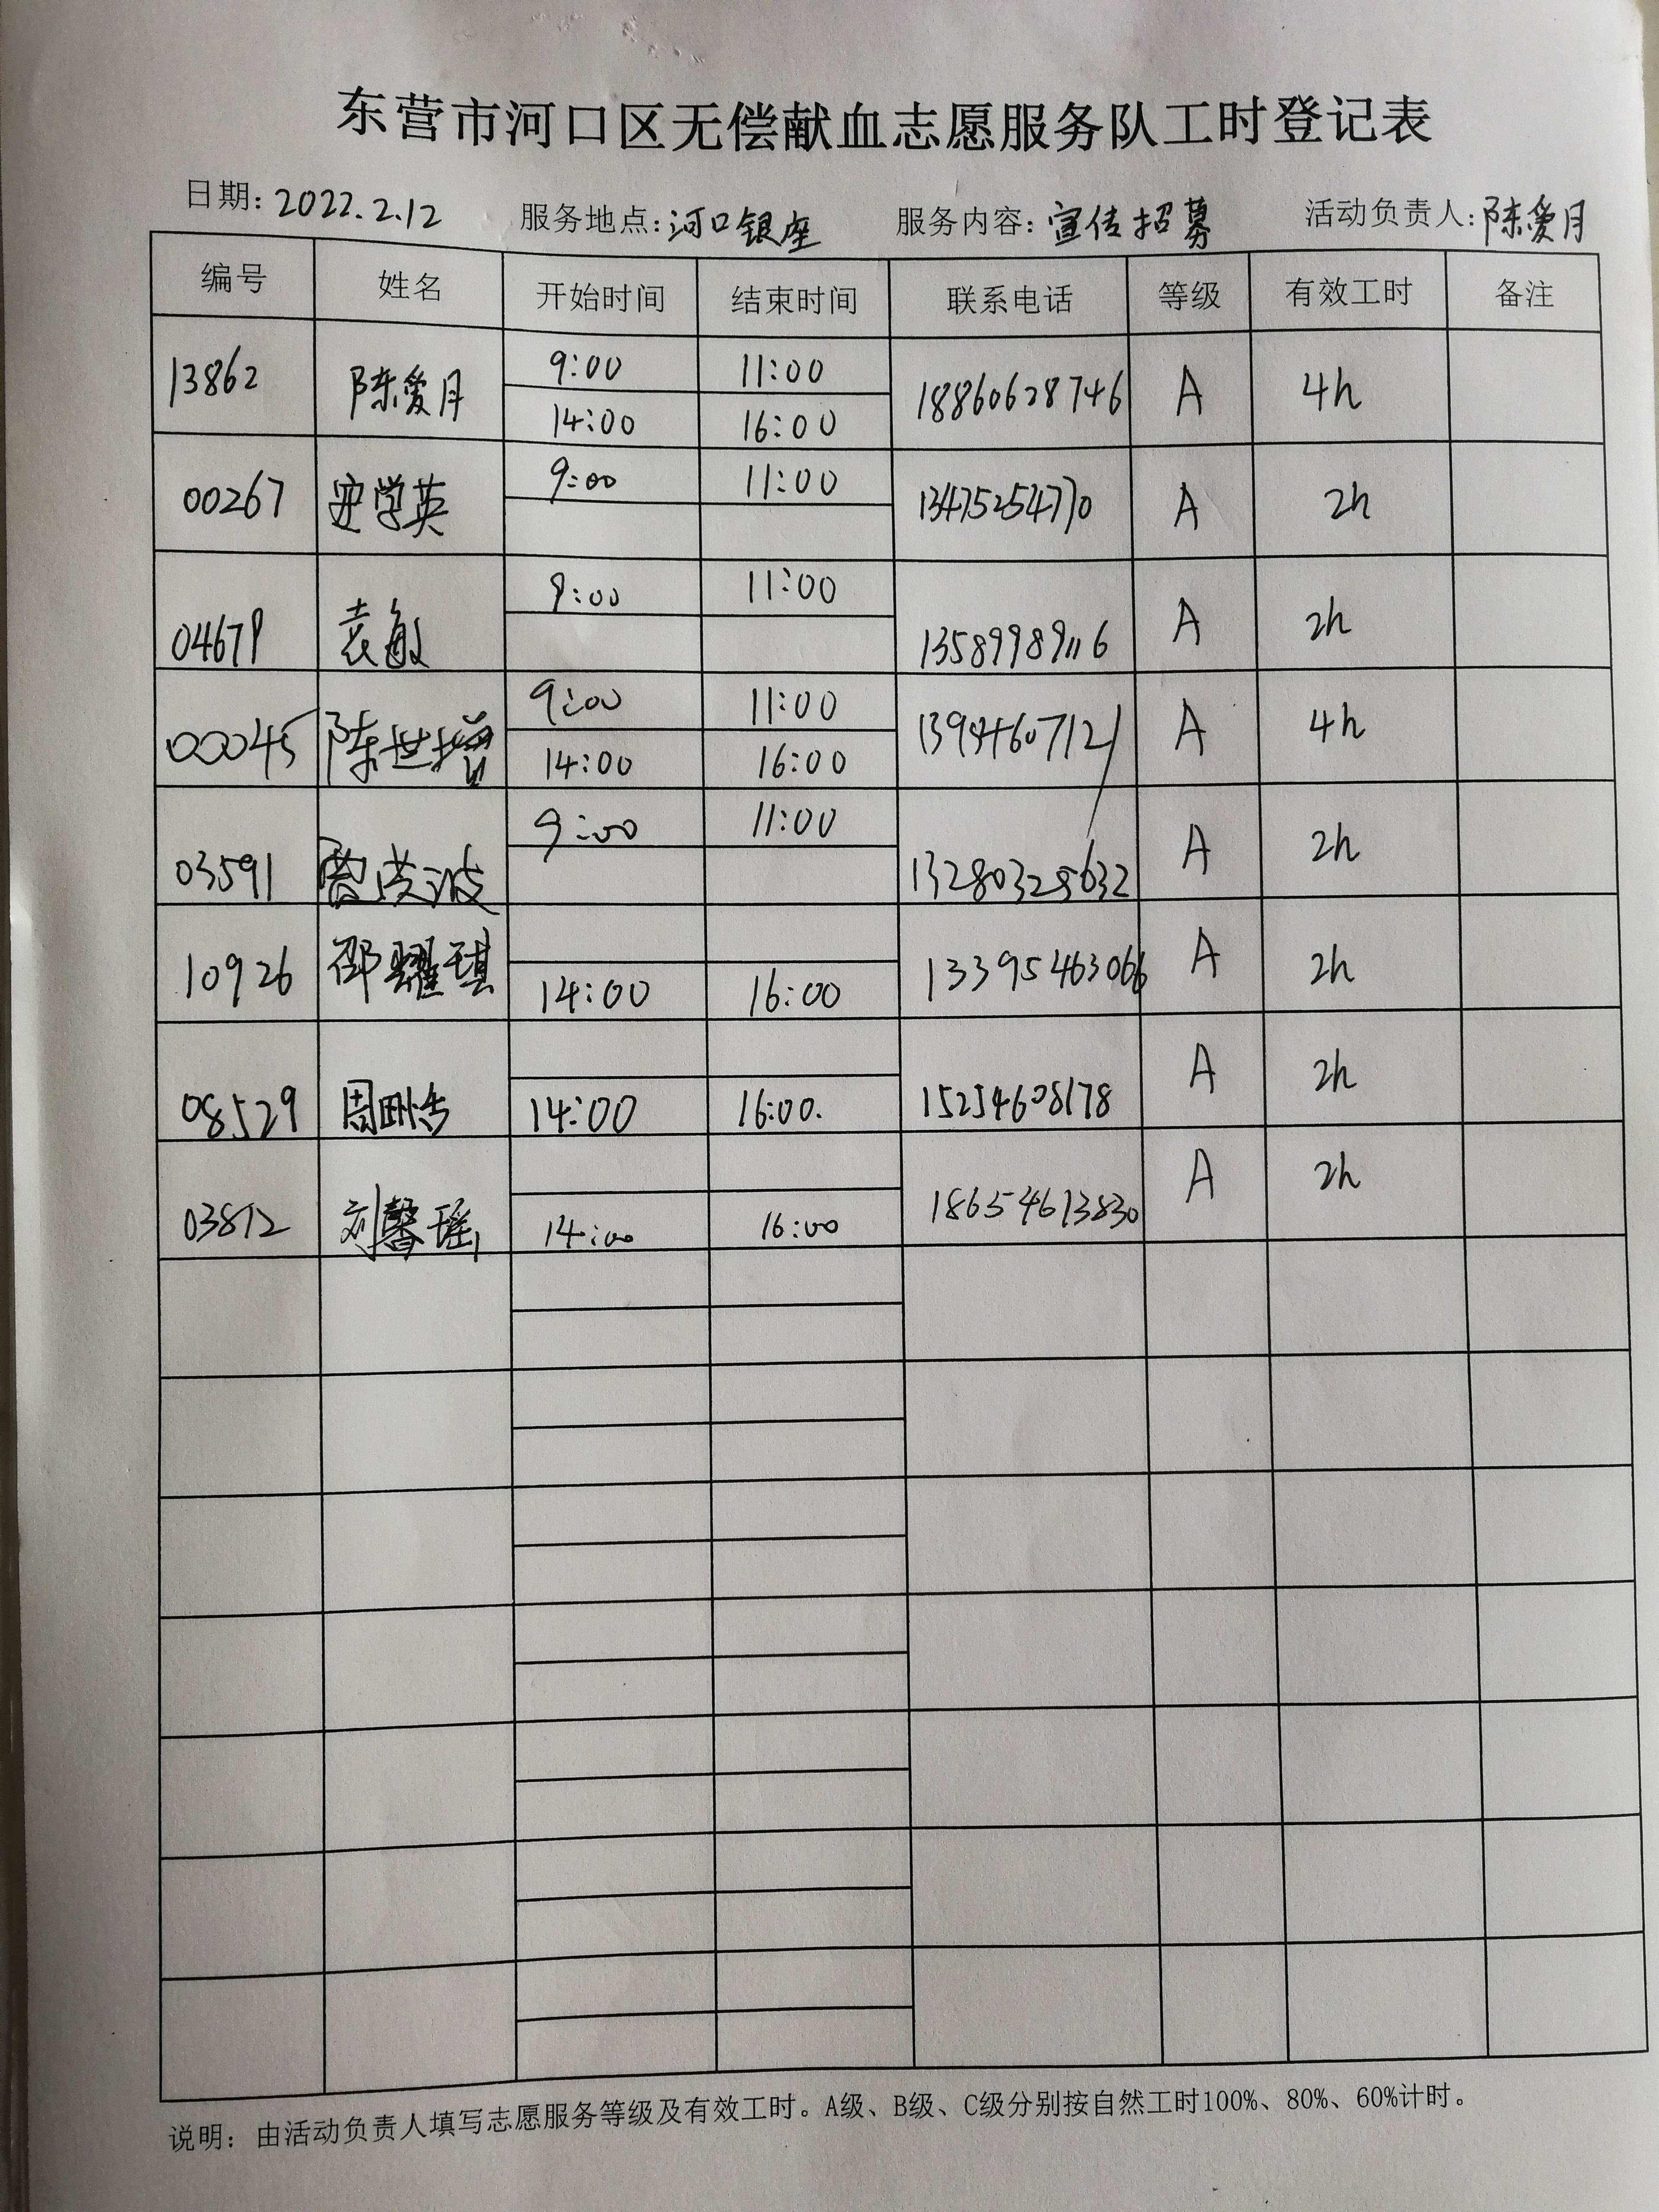 东营市河口区无偿献血志愿服务队工时登记表
日期: 2022.2.12 服务地点: 河口银座 服务内容: 宣传招募 活动负责人: 陈爱月
编号 姓名 开始时间 结束时间 联系电话 等级 有效工时 备注
13862 陈爱月 9:00 11:00 18860628746 A 4h
14:00 16:00
00267 学英 9:00 11:00 13475254770 A 2h
04679 袁敏 9:00 11:00 13589989116 A 2h
00045 陈世增 9:00 11:00 A 4h
14:00 16:00
03591 波 9:00 11:00 13280325632 A 2h
10926 邵耀琪 14:00 16:00 13395463066 A 2h
08529 周 14:00 16:00. 15254608178 A 2h
03812 刘馨瑶 14:00 16:00 18654613830 A 2h
说明: 由活动负责人填写志愿服务等级及有效工时。A级、B级、C级分别按自然工时100%、80%、60%计时。